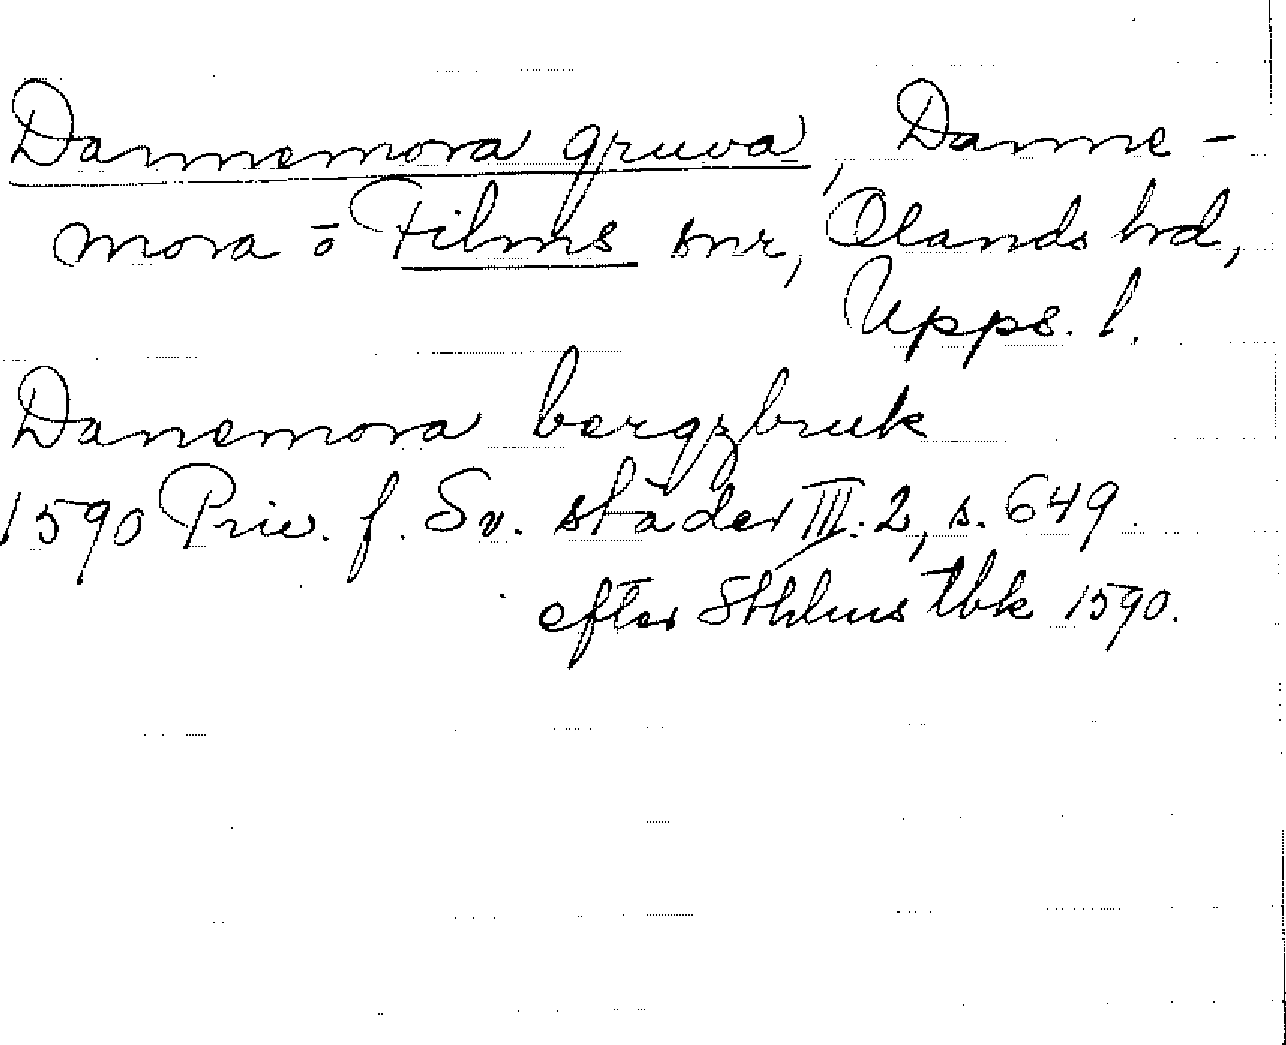 Dannemora gruva, Danne-
mora ō Films snr, Olands hrd,
Upps. l.
Danemora bergzbruk
1590 Priv. f. Sv. städer III:2, s. 649
efter Sthlms tbk 1590.